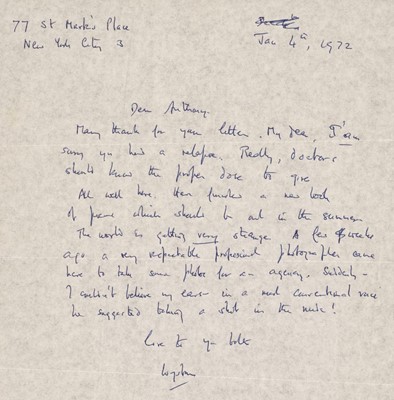 77 St Mark's Place
New York City 3
Jan 4th, 1972
Dear Anthony,
Many thanks for your letter. My dear, I'm
sorry you had a relapse. Really, doctors
should know the proper dose to give.
All well here. Have finished a new book
of poems which should be out in the summer
The world is getting very strange. A few weeks
ago a very respectable professional photographer came
here to take some photos for an agency. Suddenly –
I couldn't believe my ears – in a most conventional voice
he suggested taking a shot in the nude!
love to you both
Wystan